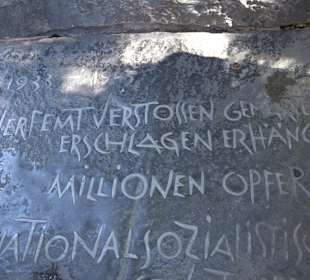 1933
VERFEMT VERSTOSSEN GEMAR
ERSCHLAGEN ERHÄNG
MILLIONEN OPFER
NATIONALSOZIALISTISC